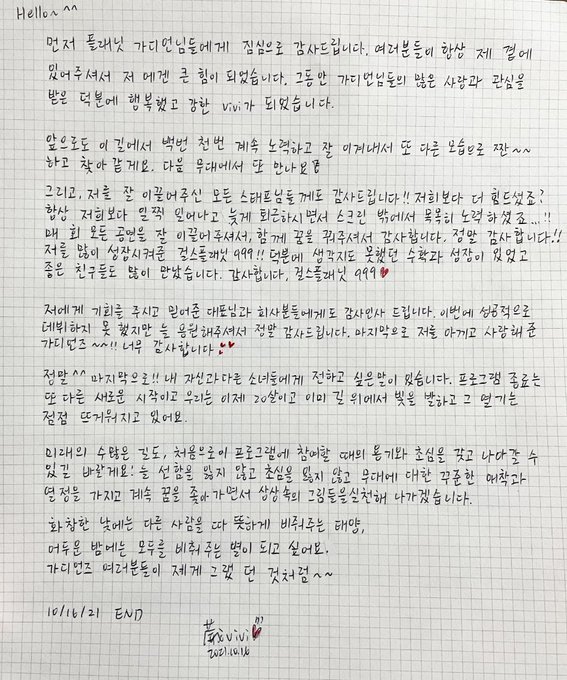 Hello~ ^^
먼저 플래닛 가디언님들에게 짐심으로 감사드립니다. 여러분들이 항상 제 곁에
있어주셔서 저 에겐 큰 힘이 되었습니다. 그동안 가디언님들의 많은 사랑과 관심을
받은 덕분에 행복했고 강한 vivi가 되었습니다.
앞으로도 이 길에서 백번 천번 계속 노력하고 잘 이겨내서 또 다른 모습으로 짠~~
하고 찾아 갈게요. 다음 무대에서 또 만나요
그리고, 저를 잘 이끌어주신 모든 스태프님들께도 감사드립니다!! 저희보다 더 힘드셨죠?
항상 저희보다 일찍 일어나고 늦게 퇴근하시면서 스크린 밖에서 묵묵히 노력하셨죠...!!
매 회 모든 공연을 잘 이끌어주셔서, 함께 꿈을 꿔주셔서 감사합니다. 정말 감사합니다!!
저를 많이 성장시켜준 걸스플래닛 999!! 덕분에 생각지도 못했던 수확과 성장이 있었고
좋은 친구들도 많이 만났습니다. 감사합니다, 걸스플래닛 999♥
저에게 기회를 주시고 믿어준 대표님과 회사분들에게도 감사인사 드립니다. 이번에 성공적으로
데뷔하지 못 했지만 늘 응원해주셔서 정말 감사드립니다. 마지막으로 저를 아끼고 사랑해 준
가디언즈~~!! 너무 감사합니다♥♥
정말^^ 마지막으로!! 내 자신과 다른 소녀들에게 전하고 싶은말이 있습니다. 프로그램 종료는
또 다른 새로운 시작이고 우리는 이제 20살이고 이미 길 위에서 빛을 발하고 그 열기는
점점 뜨거워지고 있어요.
미래의 수많은 길도, 처음으로 이 프로그램에 참여할 때의 용기와 초심을 갖고 나아갈 수
있길 바랄게요! 늘 선함을 잃지 않고 초심을 잃지 않고 무대에 대한 꾸준한 애착과
열정을 가지고 계속 꿈을 좇아가면서 상상속의 그림들을 실천해 나가겠습니다.
화창한 낮에는 다른 사람을 따 뜻하게 비춰주는 태양,
어두운 밤에는 모두를 비춰 주는 별이 되고 싶어요.
가디언즈 여러분들이 제게 그랬 던 것처럼~~
10/16/21 END
vivi♥
2021.10.16